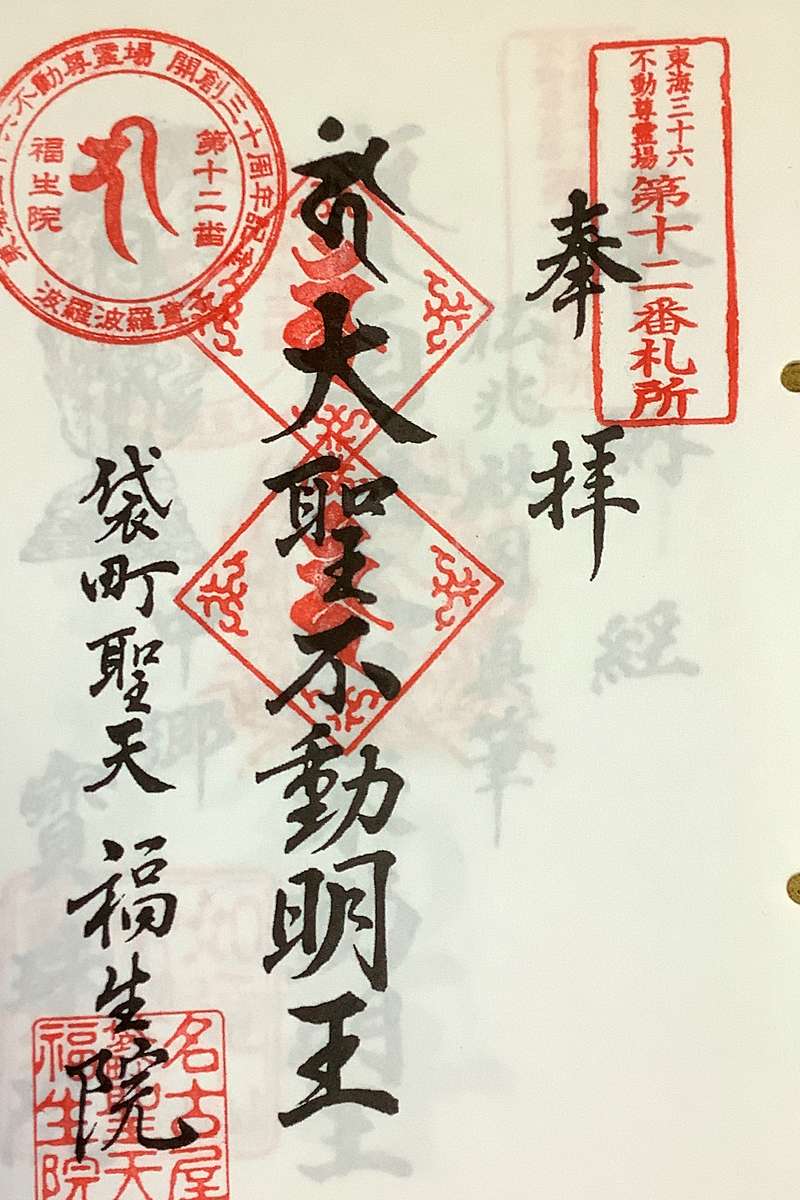 東海三十六
不動尊霊場
第十二番札所
奉拝
大聖不動明王
袋町聖天 福生院
不動尊霊場 開創三十周年記
第十二番
福生院
波羅波羅童子
名古屋
袋町聖天
福生院